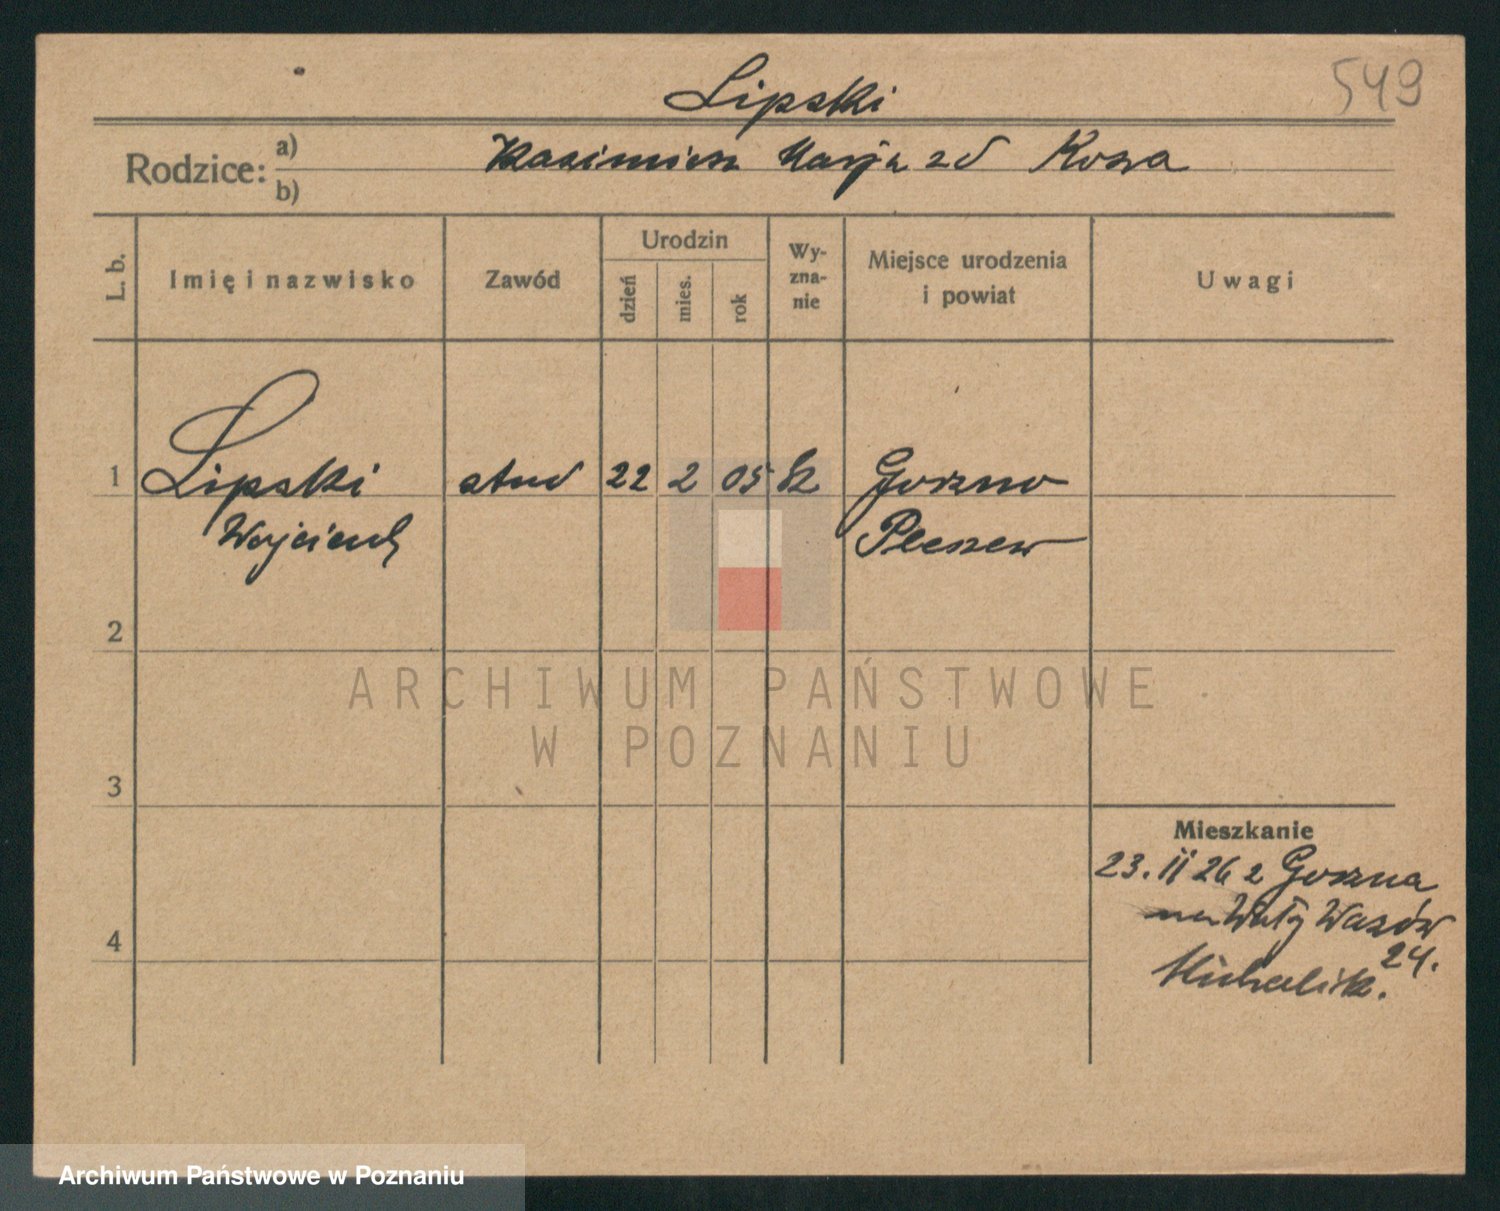 549
Lipski
Rodzice: a) Kazimierz Marja zd Koza
b)
L. b.
Imię i nazwisko
Zawód
Urodzin
dzień
mies.
rok
Wy-
zna-
nie
Miejsce urodzenia
i powiat
Uwagi
1 Lipski stud 22 2 05 Gorzno
Wojciech Pleszew
2
3
4
Mieszkanie
23. II 26 z Gorzna
na Wały Wazów
24.
Michalik.
ARCHIWUM PAŃSTWOWE
W POZNANIU
Archiwum Państwowe w Poznaniu